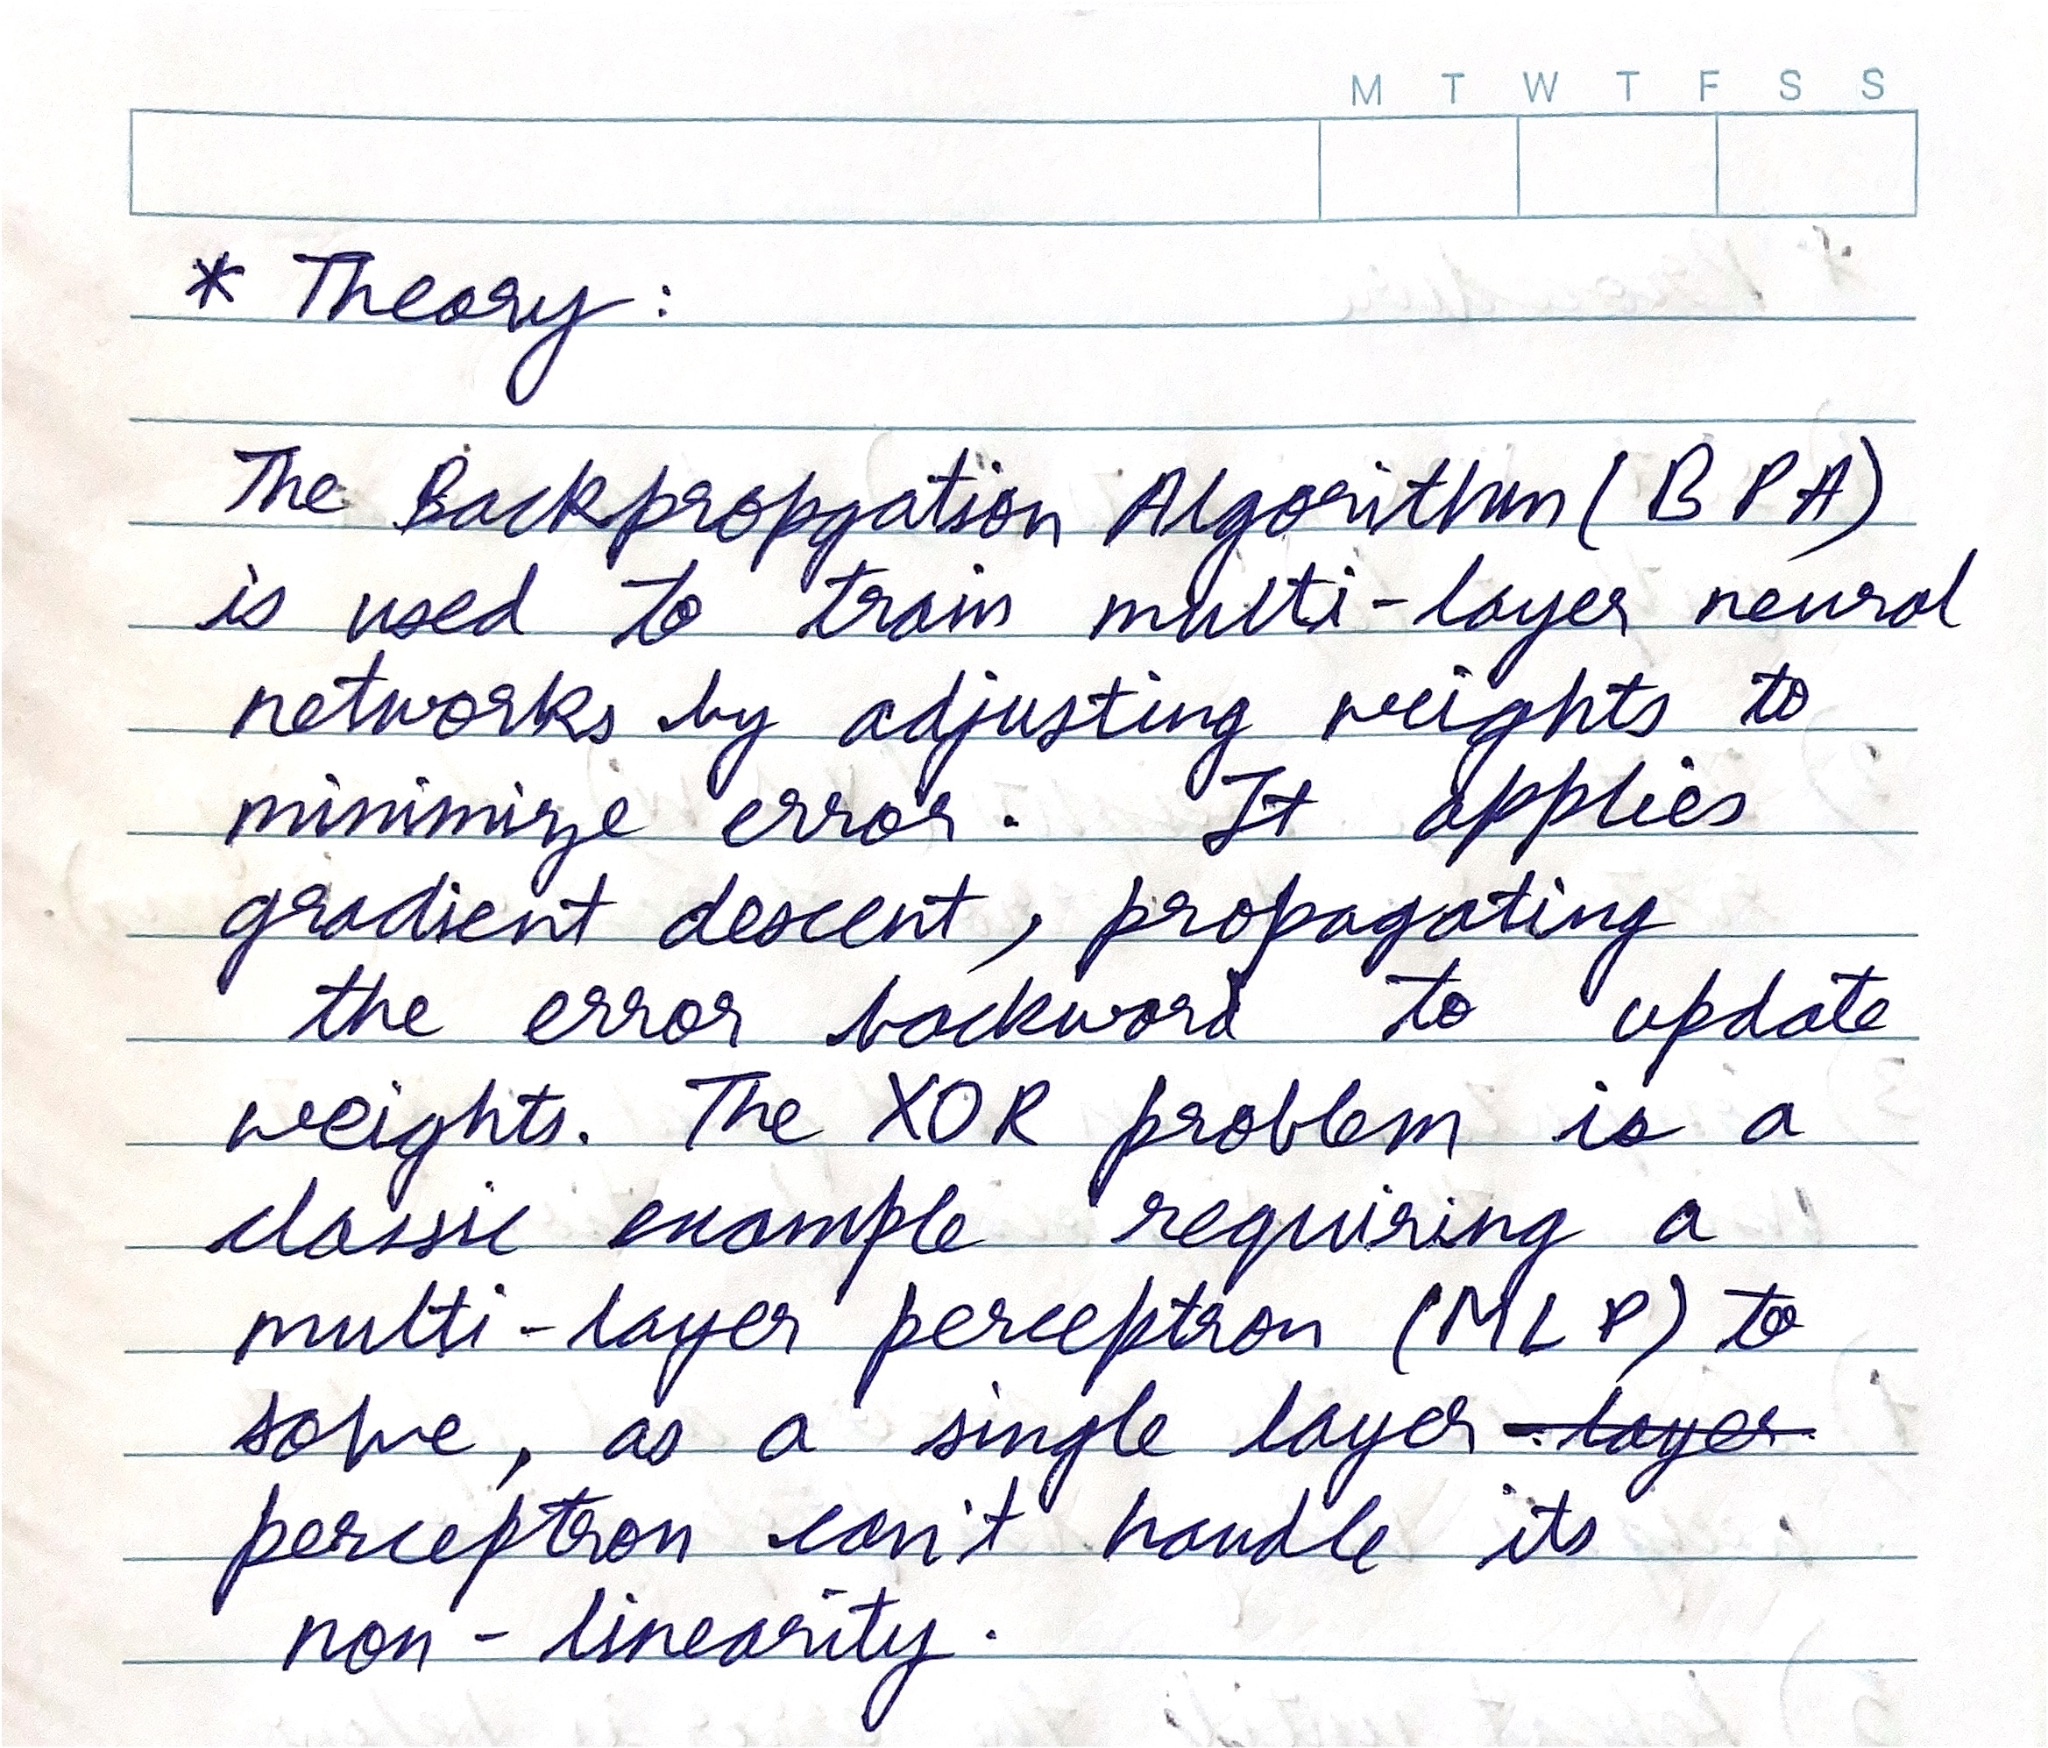 M T W T F S S
* Theory :
The Backpropgation Algorithm (BPA)
is used to train multi-layer neural
networks by adjusting weights to
minimize error. It applies
gradient descent, propagating
the error backward to update
weights. The XOR problem is a
classic example requiring a
multi-layer perceptron (MLP) to
solve, as a single layer - layer
perceptron can't handle its
non-linearity.